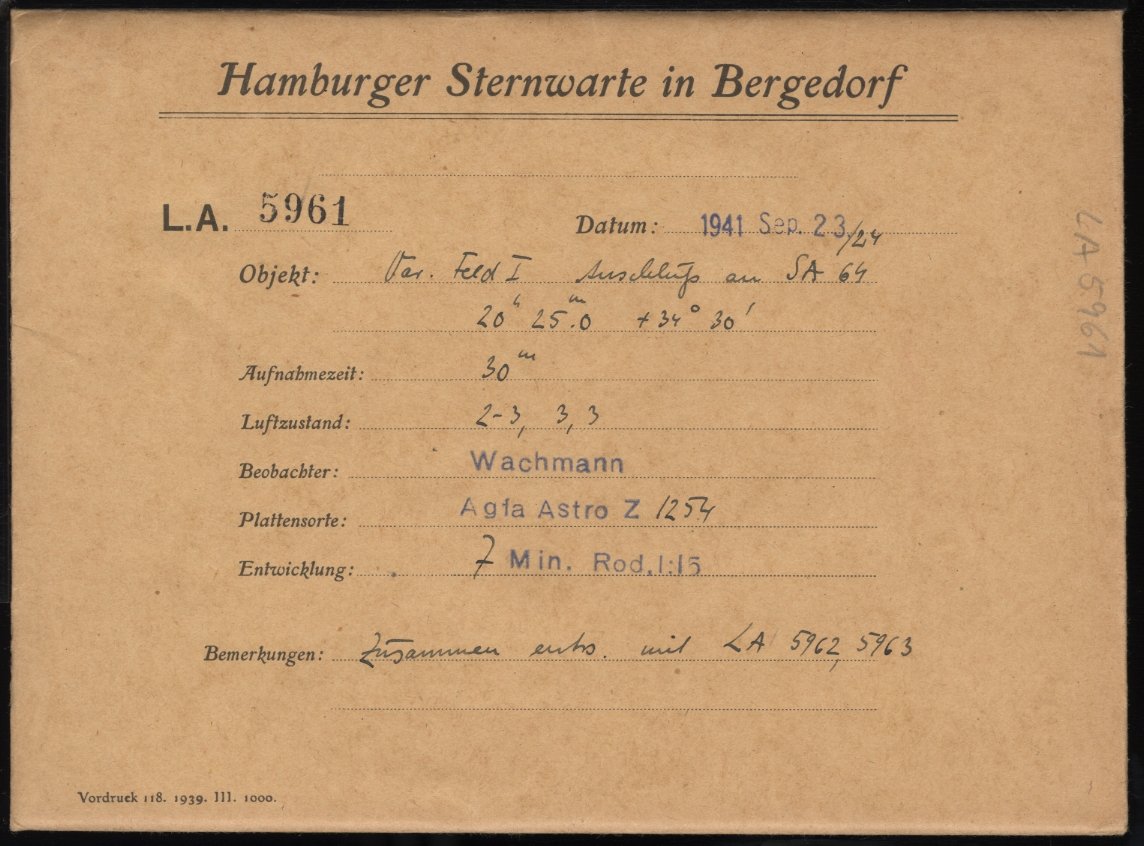 Hamburger Sternwarte in Bergedorf
L.A. 5961
Datum: 1941 Sep. 23/24
Objekt: Var. Feld I Anschluß an SA 64
20ʰ 25ᵐ.0 +34° 30'
Aufnahmezeit: 30ᵐ
Luftzustand: 2-3, 3, 3
Beobachter: Wachmann
Plattensorte: Agfa Astro Z 1254
Entwicklung: 7 Min. Rod. 1:15
Bemerkungen: Zusammen entw. mit LA 5962, 5963
Vordruck 118. 1939. III. 1000.
LA 5961